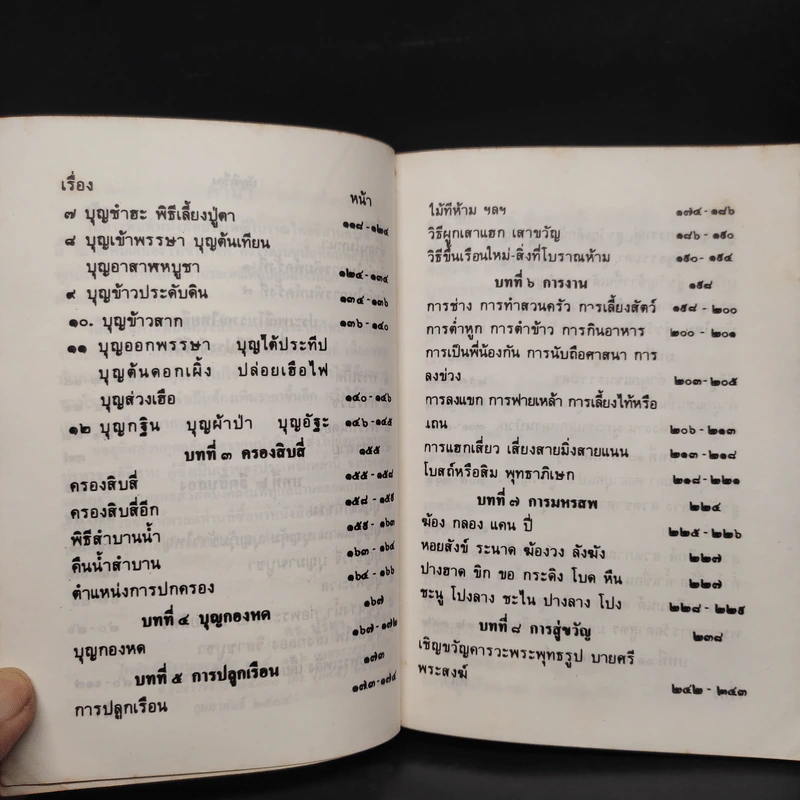 เรื่อง
หน้า
๗ บุญชำฮะ พิธีเลี้ยงปู่ตา ๑๑๘-๑๒๔
๘ บุญเข้าพรรษา บุญต้นเทียน
บุญอาสาฬหบูชา ๑๒๔-๑๓๔
๙ บุญข้าวประดับดิน ๑๓๔-๑๓๖
๑๐. บุญข้าวสาก ๑๓๖-๑๔๐
๑๑ บุญออกพรรษา บุญไต้ประทีป
บุญต้นดอกเผิ้ง ปล่อยเฮือไฟ
บุญส่วงเฮือ ๑๔๐-๑๔๖
๑๒ บุญกฐิน บุญผ้าป่า บุญอัฐะ ๑๔๖-๑๕๕
บทที่ ๓ ครองสิบสี่ ๑๕๕
ครองสิบสี่ ๑๕๕-๑๕๘
ครองสิบสี่อีก ๑๕๘-๑๕๙
พิธีสำบานน้ำ ๑๕๙-๑๖๓
คืนน้ำสำบาน ๑๖๓-๑๖๔
ตำแหน่งการปกครอง ๑๖๔-๑๖๖
บทที่ ๔ บุญกองหด ๑๖๗
บุญกองหด ๑๖๗-๑๗๒
บทที่ ๕ การปลูกเรือน ๑๗๓
การปลูกเรือน ๑๗๓-๑๗๔
ไม้ที่ห้าม ฯลฯ ๑๗๔-๑๘๖
วิธีผูกเสาแฮก เสาขวัญ ๑๘๖-๑๙๐
วิธีขึ้นเรือนใหม่-สิ่งที่โบราณห้าม ๑๙๐-๑๙๔
บทที่ ๖ การงาน ๑๙๘
การช่าง การทำสวนครัว การเลี้ยงสัตว์ ๑๙๘-๒๐๐
การต่ำหูก การตำข้าว การกินอาหาร ๒๐๐-๒๐๑
การเป็นพี่น้องกัน การนับถือศาสนา การ
ลงข่วง ๒๐๓-๒๐๕
การลงแขก การฟายเหล้า การเลี้ยงไท้หรือ
เถน ๒๐๖-๒๑๓
การแฮกเสี่ยว เสี่ยงสายมิ่งสายแนน ๒๑๓-๒๑๘
โบสถ์หรือสิม พุทธาภิเษก ๒๑๘-๒๒๑
บทที่ ๗ การมหรสพ ๒๒๔
ฆ้อง กลอง แคน ปี่ ๒๒๕-๒๒๖
หอยสังข์ ระนาด ฆ้องวง ลังฆัง ๒๒๗
ปางฮาด ขิก ขอ กระดิง โบด หืน ๒๒๗
ชะนู โปงลาง ชะไน ปางลาง โปง ๒๒๘-๒๒๙
บทที่ ๘ การสู่ขวัญ ๒๓๘
เชิญขวัญคารวะพระพุทธรูป บายศรี
พระสงฆ์ ๒๔๒-๒๔๓